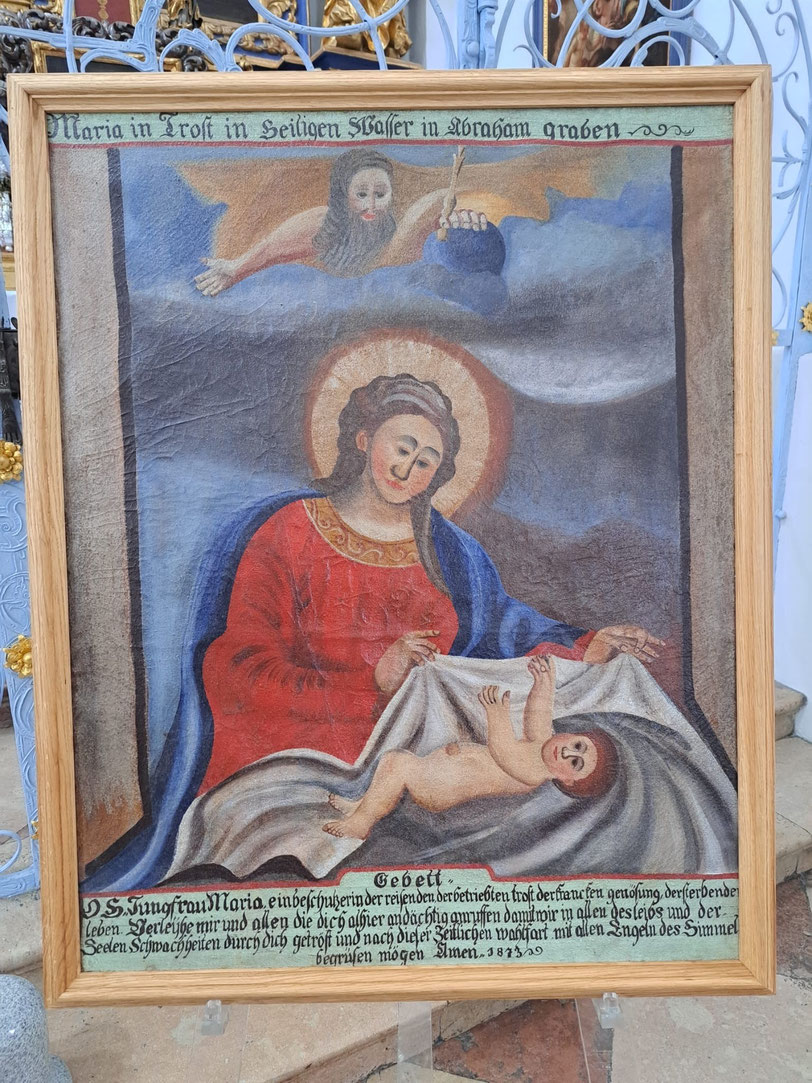 Maria in Trost in Heiligen Wasser in Abraham graben
Gebett
O H. Jungfrau Maria, ein beschutzerin der reisenden der betriebten trost der krancken genösung, der sterbenden
leben. Verleyhe mir und allen die dich alhier andächtig anruffen damit wir in allen desleibs und der-
Seelen Schwachheiten durch dich getröst und nach dieser Zeitlichen wahlfart mit allen Engeln des Himmel
begrüsen mögen Amen. 1873